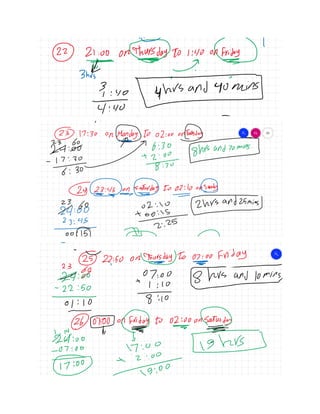 22 21:00 on Thursday to 1:40 on Friday
3hrs
3
1:40
4:40
4hrs and 40 mins
23 17:30 on Monday to 02:00 on Tuesday
23 60
24:00
- 17:30
6:30
6:30
+ 2:00
8:30
8hrs and 30 mins
24 23:45 on Saturday to 02:10 on Sunday
23 60
24:00
23:45
00:15
02:10
+ 00:15
2:25
2hrs and 25mins
25 22:50 on Thursday to 07:00 Friday
23 60
24:00
- 22:50
01:10
07:00
+ 1:10
8:10
8 hrs and 10mins
26 07:00 on Friday to 02:00 on Saturday
24:00
- 07:00
17:00
17:00
+ 2:00
19:00
19 hrs